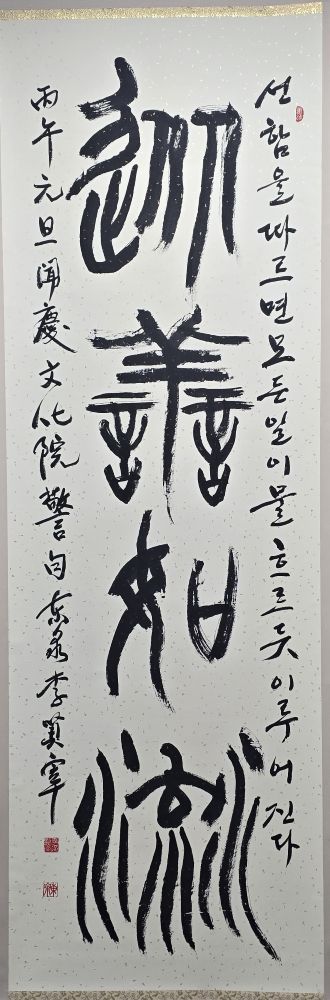 선함을따르면모든일이물흐르듯이루어진다
從善如流
丙午元旦聞慶文化院警句 李